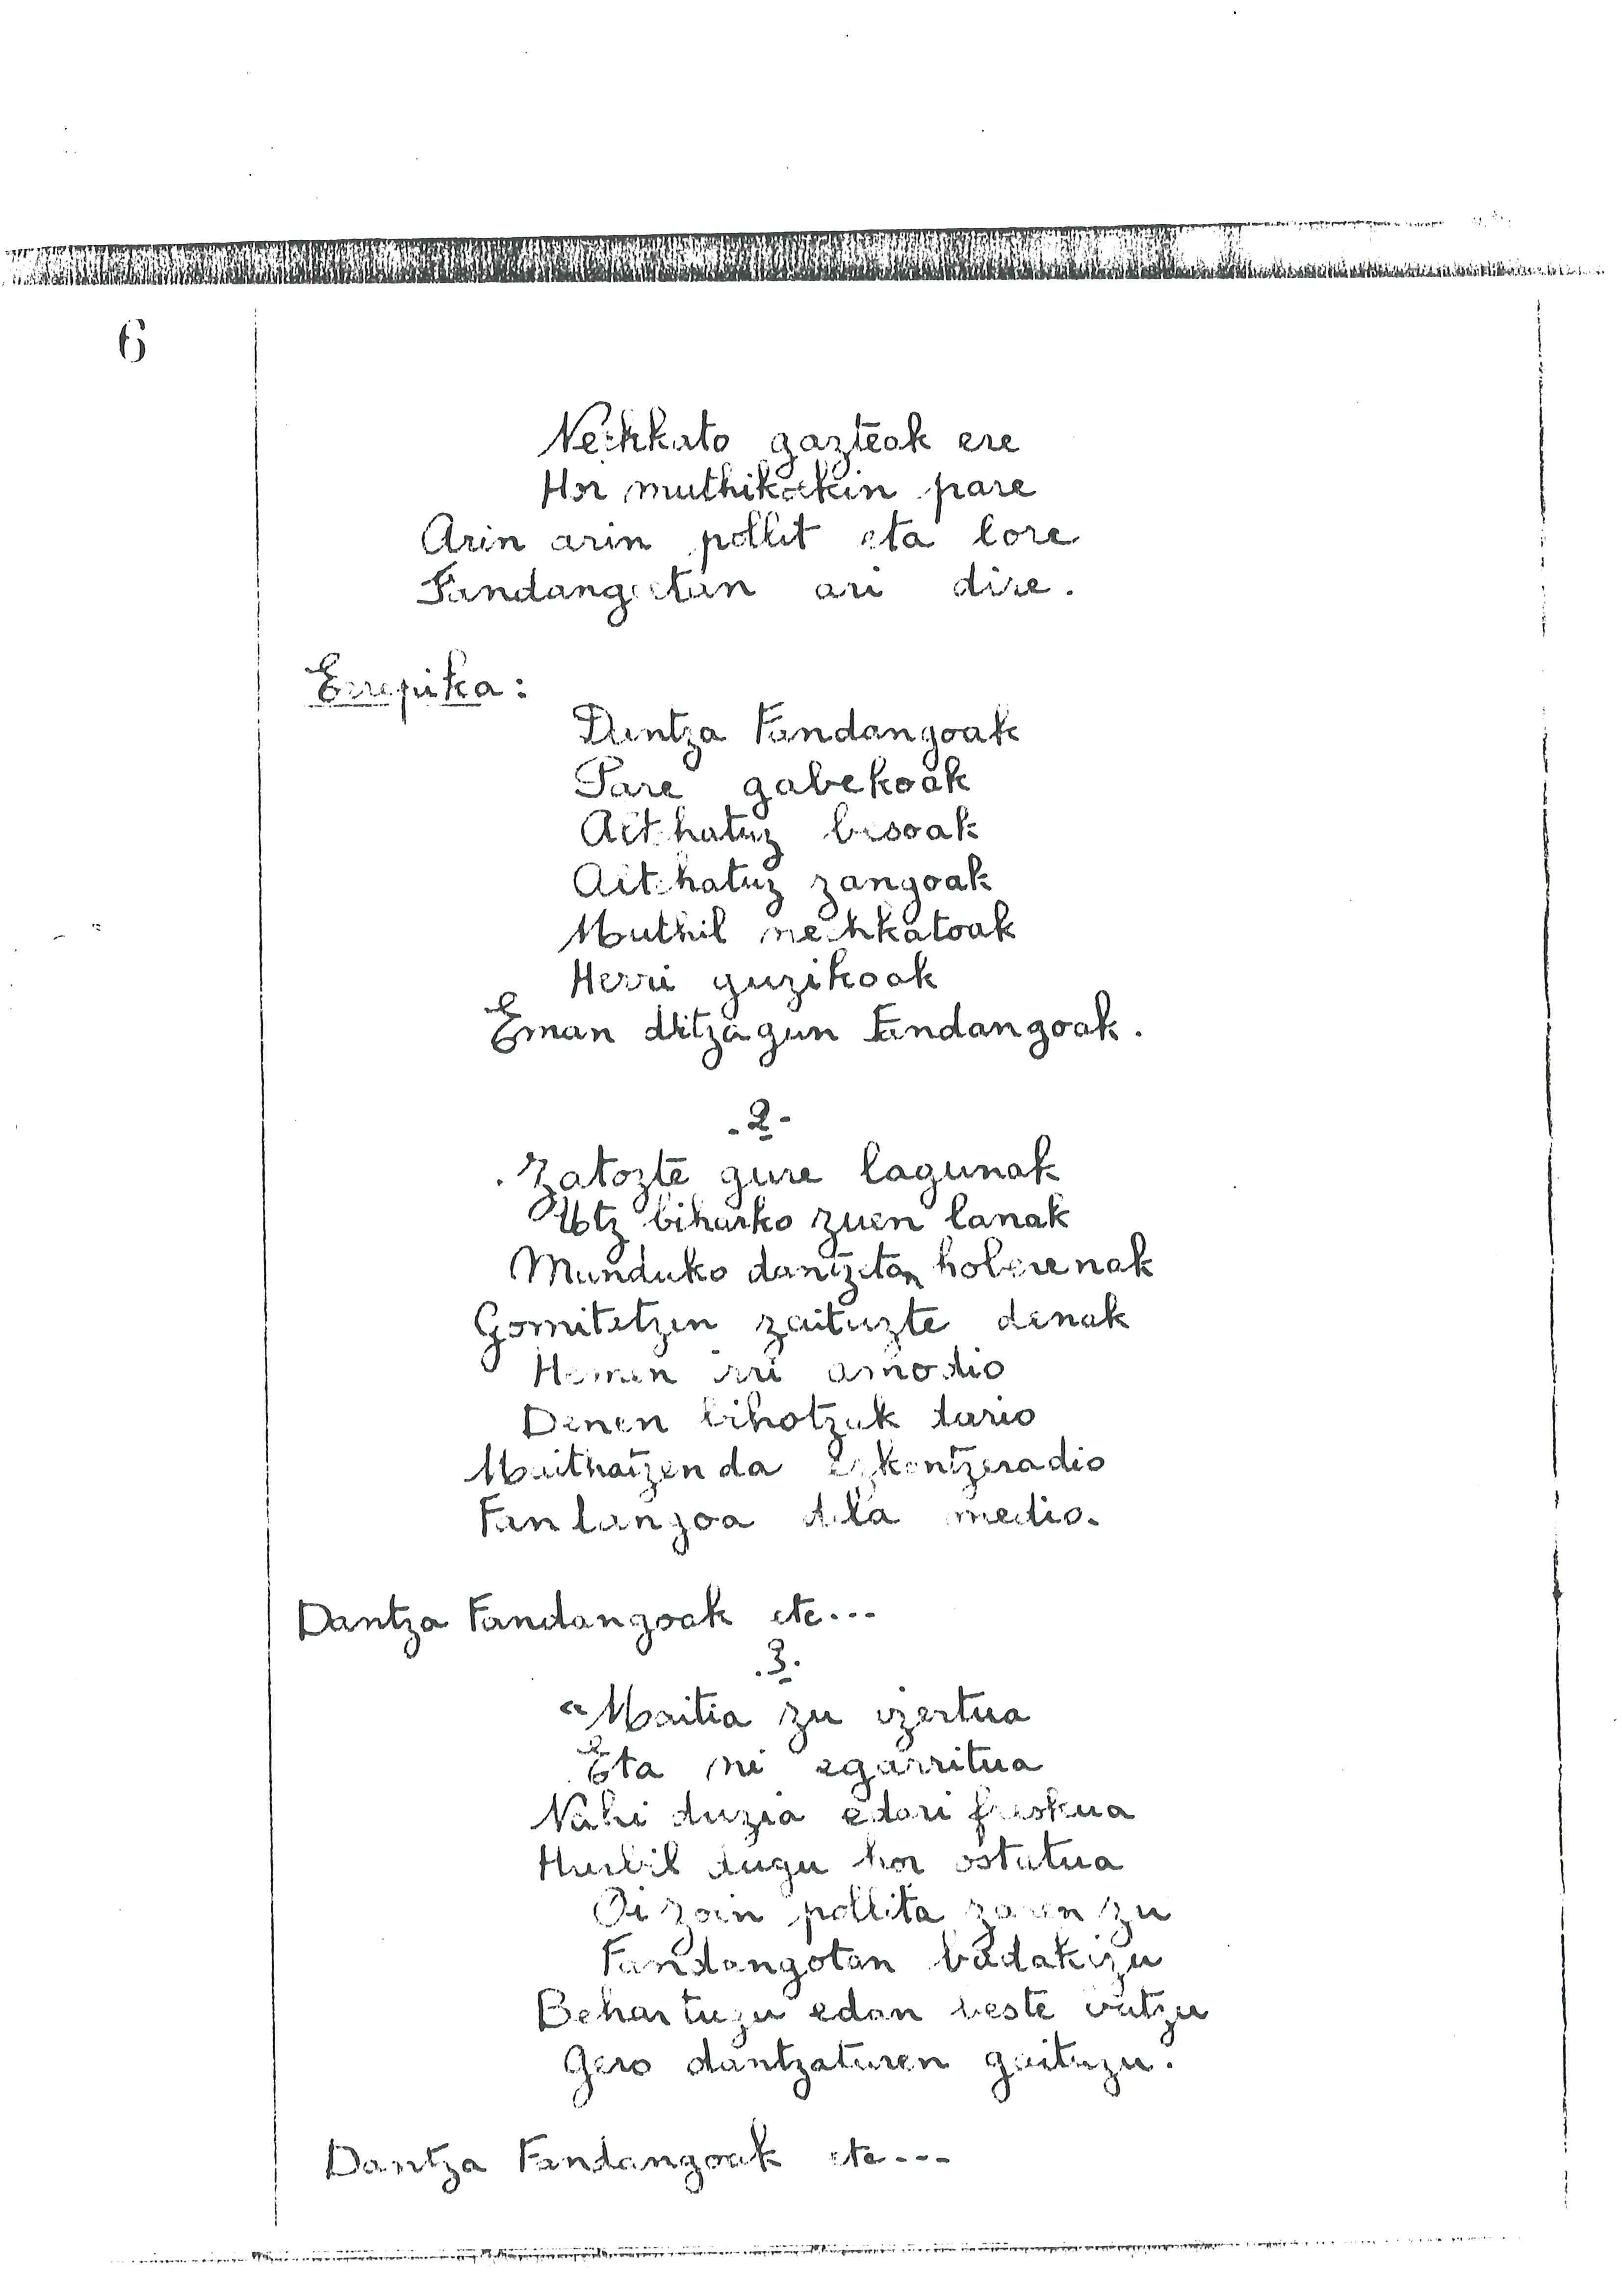 6
Nechkato gazteak ere
Hor muthikoekin pare
Arin arin pollit eta lore
Fandangoetan ari dire.
Errepika:
Dantza Fandangoak
Pare gabekoak
Altchatuz besoak
Altchatuz zangoak
Muthil nechkatoak
Herri guzikoak
Eman ditzagun Fandangoak.
.2.
Zatozte gure lagunak
Utz biharko zuen lanak
Munduko dantzetan hoberenak
Gomitetzen zaituzte denak
Hemen irri amodio
Denen bihotzak dario
Maithatzen da ezkontzeradio
Fandangoa dela medio.
Dantza Fandangoak etc...
.3.
"Maitia zu izertua
Eta ni egarritua
Nahi duzia edari freskua
Hurbil dugu hor ostatua
Oi zoin pollita zaren zu
Fandangotan badakizu
Behar tuzu edan beste batzu
Gero dantzaturen gaituzu.
Dantza Fandangoak etc---